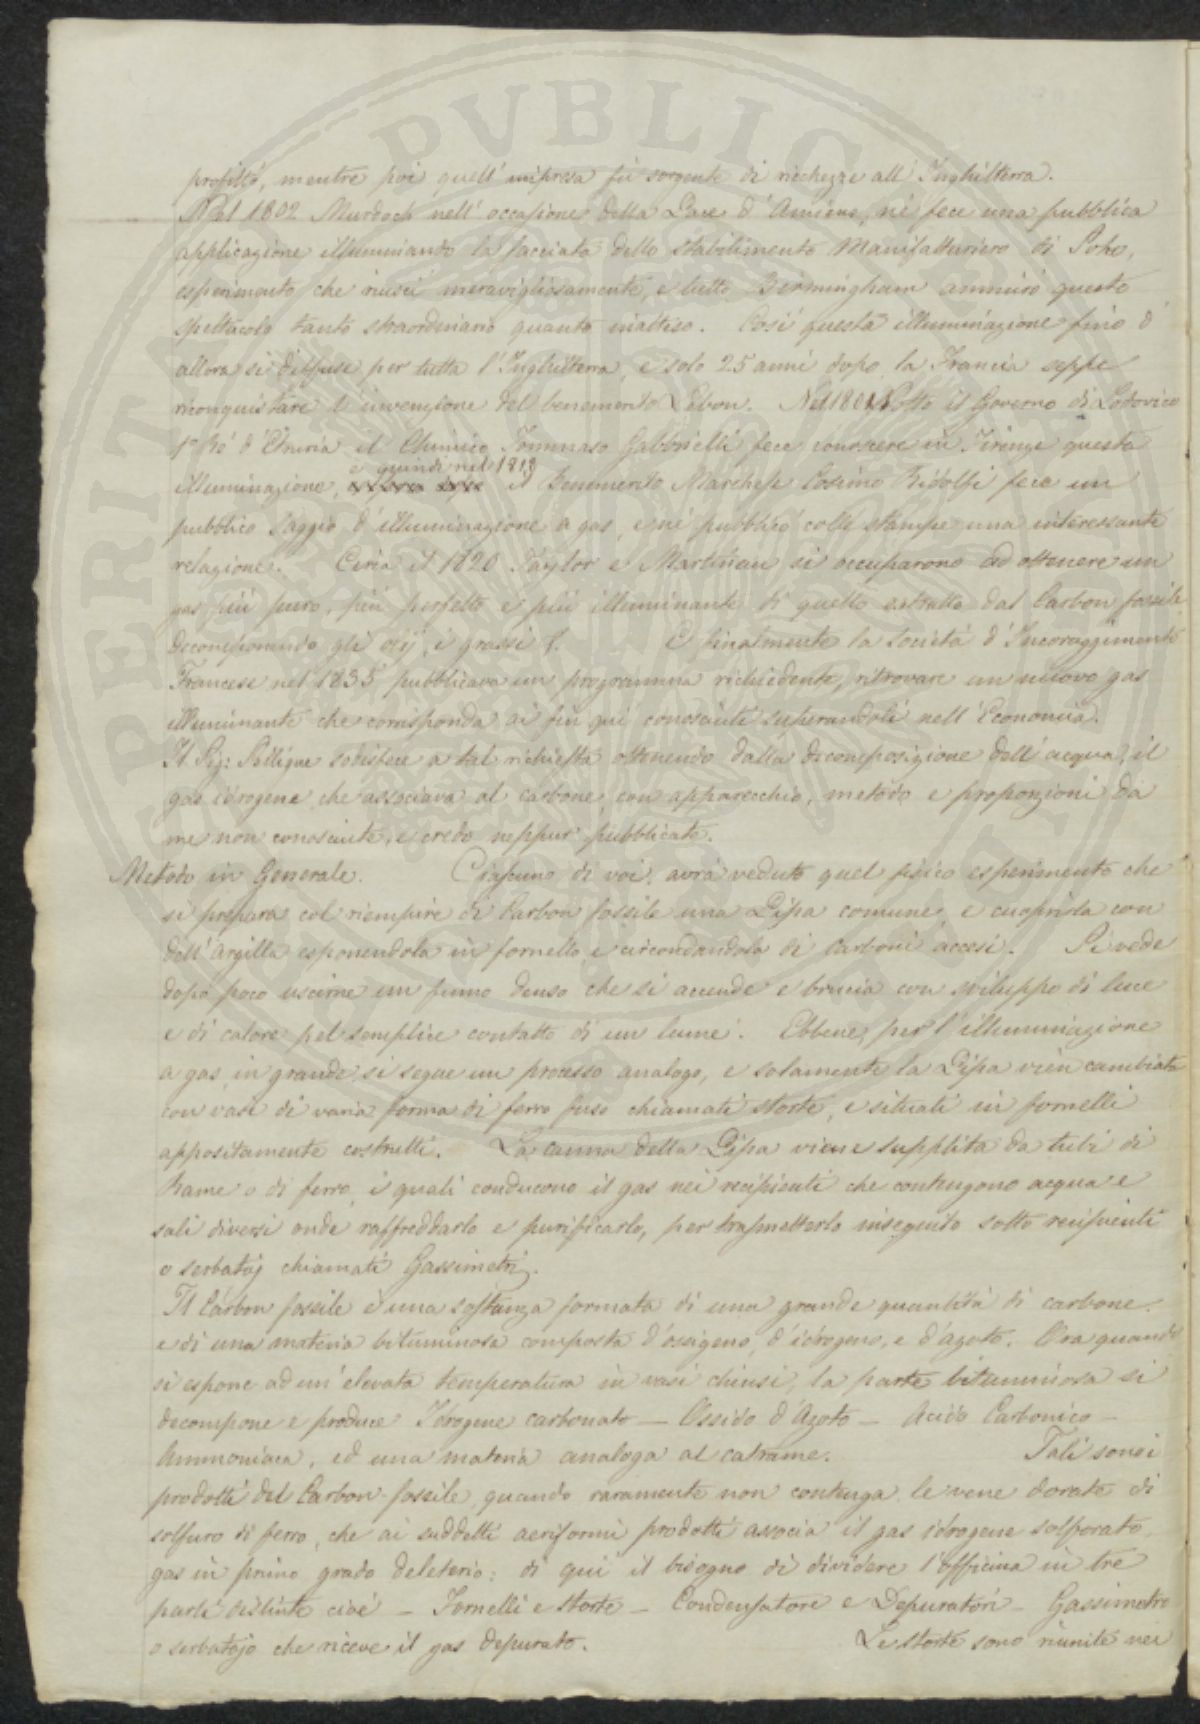 profitto, mentre poi quell'impresa fù sorgente di ricchezze all'Inghilterra.
Nel 1802 Murdoch nell'occasione della Pace d'Amiens, ne fece una pubblica
applicazione illuminando la facciata dello stabilimento Manifatturiero di Soho,
esperimento che riuscì meravigliosamente, e tutto Birmingham ammirò questo
spettacolo tanto straordinario quanto inatteso. Così questa illuminazione fino d'
allora si diffuse per tutta l'Inghilterra, e solo 25 anni dopo la Francia seppe
riconquistare l'invenzione del benemerito Lebon. Nel 1801 sotto il Governo di Lodovico
1º Rè d'Etruria il Chimico Tommaso Gabbrielli fece conoscere in Firenze questa
e quindi nel 1819
illuminazione, il Benemerito Marchese Cosimo Ridolfi fece un
pubblico saggio d'illuminazione a gas, e né pubblicò colle stampe una interessante
relazione. Circa il 1820 Taylor e Martinau si occuparono ad ottenere un
gas più puro, più perfetto e più illuminante di quello estratto dal Carbon fossile
decomponendo gli olij, i grassi E finalmente la Società d'Incoraggimento
Francese nel 1835 pubblicava un programma richiedente, ritrovare un nuovo gas
illuminante che corrisponda ai fin qui conosciuti superandoli nell'Economia.
Il Sig: Selligue sodisfece a tal richiesta ottenendo dalla decomposizione dell'acqua, il
gas idrogene che associava al carbone con apparecchio, metodo e proporzioni da
me non conosciute, e credo neppur pubblicate.
Metodo in Generale. Ciascuno di voi, avrà veduto quel fisico esperimento che
si prepara col riempire di Carbon fossile una Pipa comune, e cuoprirla con
dell'Argilla esponendola in fornello e circondandola di Carboni accesi. Si vede
dopo poco uscirne un fumo denso che si accende e brucia con sviluppo di luce
e di calore pel semplice contatto di un lume. Ebbene, per l'illuminazione
a gas, in grande, si segue un processo analogo, e solamente la Pipa vien cambiata
con vasi di varia forma di ferro fuso chiamati storte, e situati in fornelli
appositamente costrutti. La canna della Pipa viene supplita da tubi di
Rame o di ferro, i quali conducono il gas nei recipienti che contengono acqua e
sali diversi onde raffreddarlo e purificarlo, per trasmetterlo inseguito sotto recipienti
o serbatoj chiamati Gassimetri.
Il Carbon fossile è una sostanza formata di una grande quantità di carbone
e di una materia bituminosa composta d'ossigeno, d'idrogeno, e d'azoto. Ora quando
si espone ad un'elevata temperatura in vasi chiusi, la parte bituminosa si
decompone e produce Idrogene carbonato — Ossido d'Azoto — Acido Carbonico —
Ammoniaca, ed una materia analoga al catrame. Tali sono i
prodotti del Carbon-fossile, quando raramente non contenga le vene dorate di
solfuro di ferro, che ai suddetti aeriformi prodotti associa il gas idrogene solforato,
gas in primo grado deleterio: di qui il bisogno di dividere l'officina in tre
parti distinte cioé — Fornelli e Storte — Condensatore e Depuratori — Gassimetro
o serbatojo che riceve il gas depurato. Le storte sono riunite nei
PERITIA PUBLICE